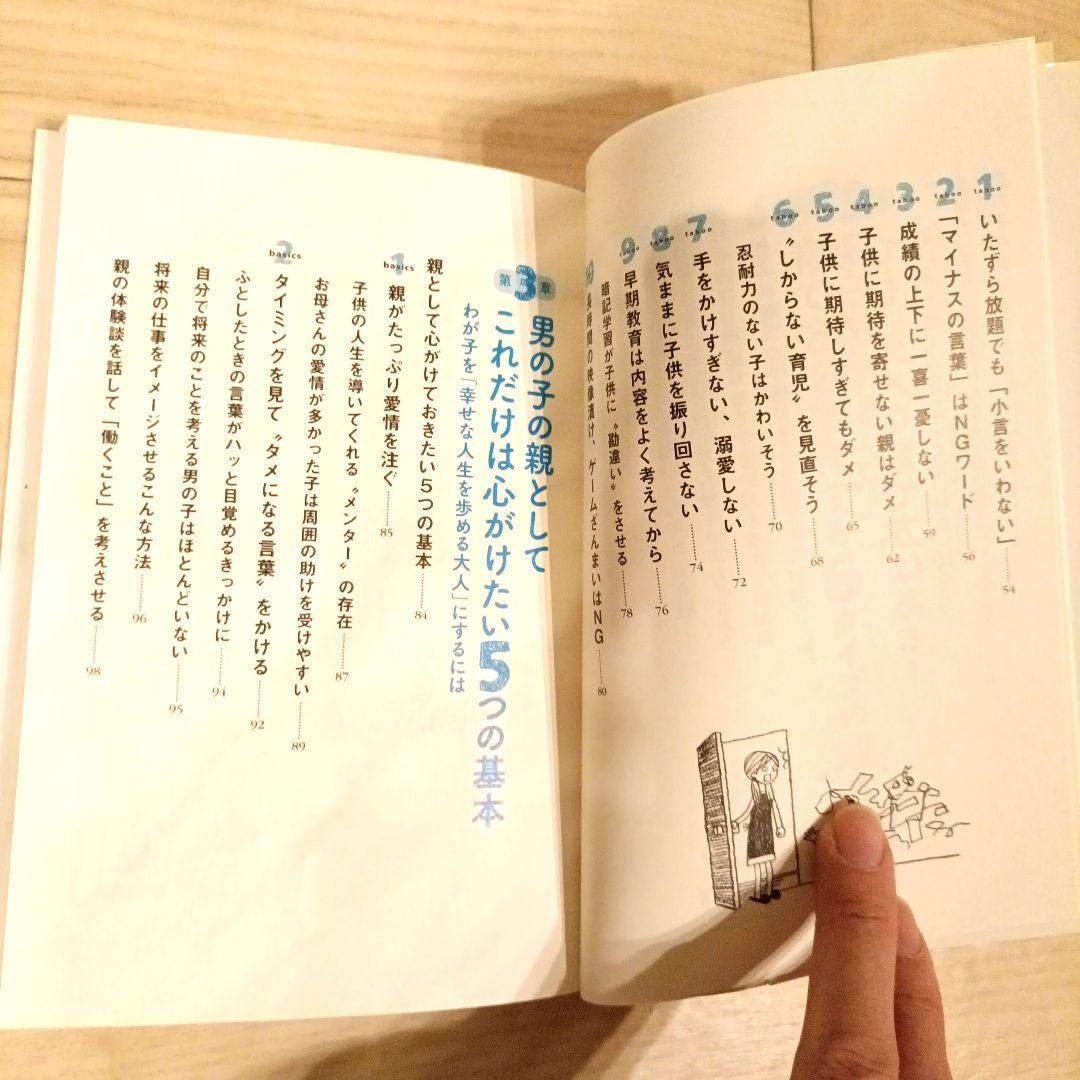 1 taboo いたずら放題でも「小言をいわない」 54
2 taboo 「マイナスの言葉」はNGワード 56
3 taboo 成績の上下に一喜一憂しない 59
4 taboo 子供に期待を寄せない親はダメ 62
5 taboo 子供に期待しすぎてもダメ 65
6 taboo “しからない育児”を見直そう 68
忍耐力のない子はかわいそう 70
7 taboo 手をかけすぎない、溺愛しない 72
8 taboo 気ままに子供を振り回さない 74
9 taboo 早期教育は内容をよく考えてから 76
暗記学習が子供に“勘違い”をさせる 78
長時間の映像漬け、ゲームざんまいはNG 80
第3章 男の子の親として
これだけは心がけたい5つの基本
わが子を「幸せな人生を歩める大人」にするには
親として心がけておきたい5つの基本 84
1 basics 親がたっぷり愛情を注ぐ 85
子供の人生を導いてくれる“メンター”の存在 87
お母さんの愛情が多かった子は周囲の助けを受けやすい 89
2 basics タイミングを見て“タメになる言葉”をかける 92
ふとしたときの言葉がハッと目覚めるきっかけに 94
自分で将来のことを考える男の子はほとんどいない 95
将来の仕事をイメージさせるこんな方法 96
親の体験談を話して「働くこと」を考えさせる 98